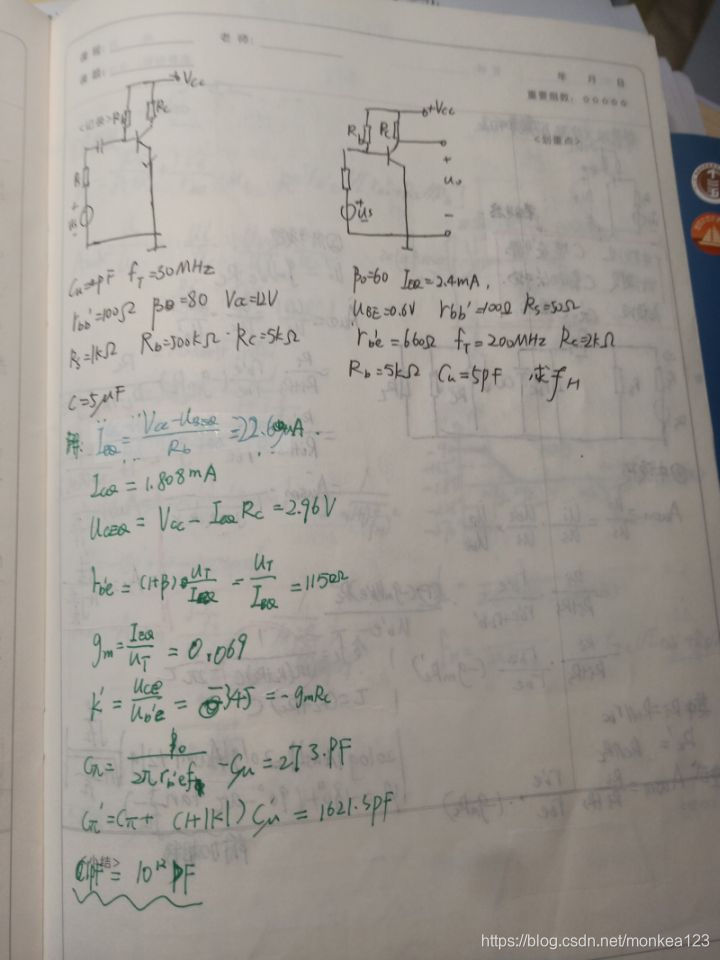 老师:
年 月 日
重要指数: ☆☆☆☆☆
<记录>
+Vcc
Rb
Rc
R
+
us
-
+Vcc
Rb
Rc
+
us
+
uo
-
<划重点>
fT=50MHz
rbb'=100Ω β0=80 Vcc=12V
Rs=1kΩ Rb=500kΩ · Rc=5kΩ
C=5μF
β0=60 IEQ=2.4mA,
UBE=0.6V rbb'=100Ω Rs=50Ω
rb'e=660Ω fT=200MHz Rc=2kΩ
Rb=5kΩ Cu=5pF 求fH
解: IBQ = (Vcc-UBEQ)/Rb = 22.6μA
ICQ = 1.808mA
UCEQ = Vcc - ICQ Rc = 2.96V
rb'e = (1+β) UT/IEQ = UT/IBQ = 1150Ω
gm = IEQ/UT = 0.069
k' = Uce/Ub'e = -345 = -gmRc
Cπ = β0/(2π rb'e fT) - Cu = 273.PF
Cπ' = Cπ + (1+|K|)Cu = 1621.5pF
<小结>
= 10¹² PF
https://blog.csdn.net/monkea123